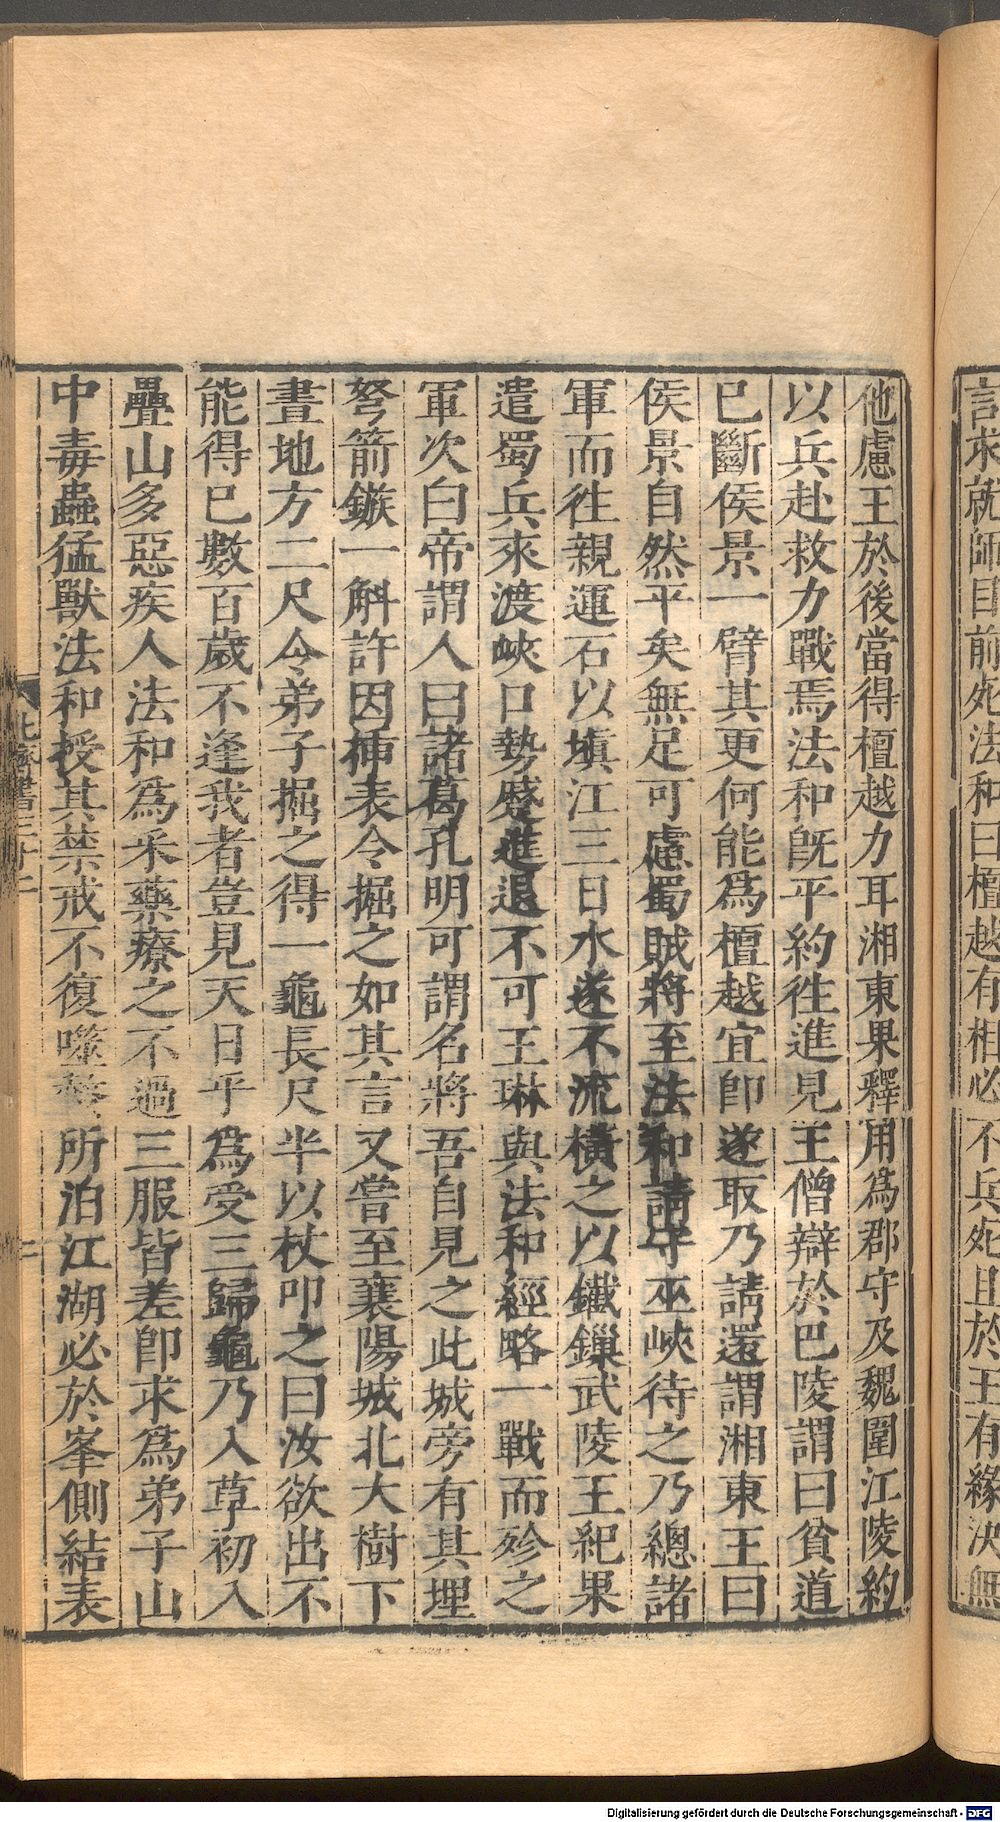 言求就師目前死法和曰檀越有相必不兵死且於王有緣決無
他慮王於後當得檀越力耳湘東果釋用爲郡守及魏圍江陵約
以兵赴救力戰焉法和旣平約往進見王僧辯於巴陵謂曰貧道
已斷侯景一臂其更何能爲檀越宜卽遂取乃請還謂湘東王曰
侯景自然平矣無足可慮蜀賊將至法和請守巫峽待之乃總諸
軍而往親運石以塡江三日水遂不流橫之以鐵鏁武陵王紀果
遣蜀兵來渡峽口勢蹙進退不可王琳與法和經略一戰而殄之
軍次白帝謂人曰諸葛孔明可謂名將吾自見之此城旁有其埋
弩箭鏃一斛許因揷表令掘之如其言又嘗至襄陽城北大樹下
畫地方二尺令弟子掘之得一龜長尺半以杖叩之曰汝欲出不
能得已數百歲不逢我者豈見天日乎爲受三歸龜乃入草初入
疊山多惡疾人法和爲采藥療之不過三服皆差卽求爲弟子山
中毒蟲猛獸法和授其禁戒不復噬螫所泊江湖必於峯側結表
北齊書三十二
二
Digitalisierung gefördert durch die Deutsche Forschungsgemeinschaft - DFG